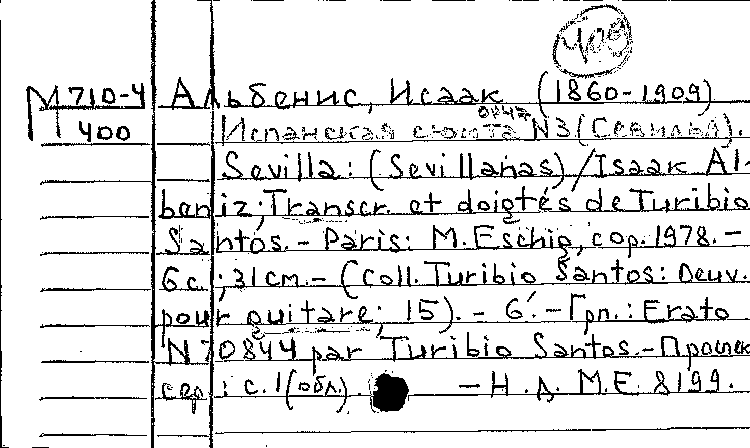 400
М 710-4 Альбенис, Исаак (1860-1909)
400 Испанская сюита ор47 N3 (Севилья).
Sevilla: (Sevillanas) / Isaak Al-
beniz; Transcr. et doigtés de Turibio
Santos. - Paris: M. Eschig, cop. 1978. -
6 с.; 31 см. - (Coll. Turibio Santos: Oeuv.
pour guitare; 15). - 6'. - Грп.: Erato
N 70844 par Turibio Santos. - Проспек
сер.: с. 1 (обл.). - Н. д. M.E. 8199.